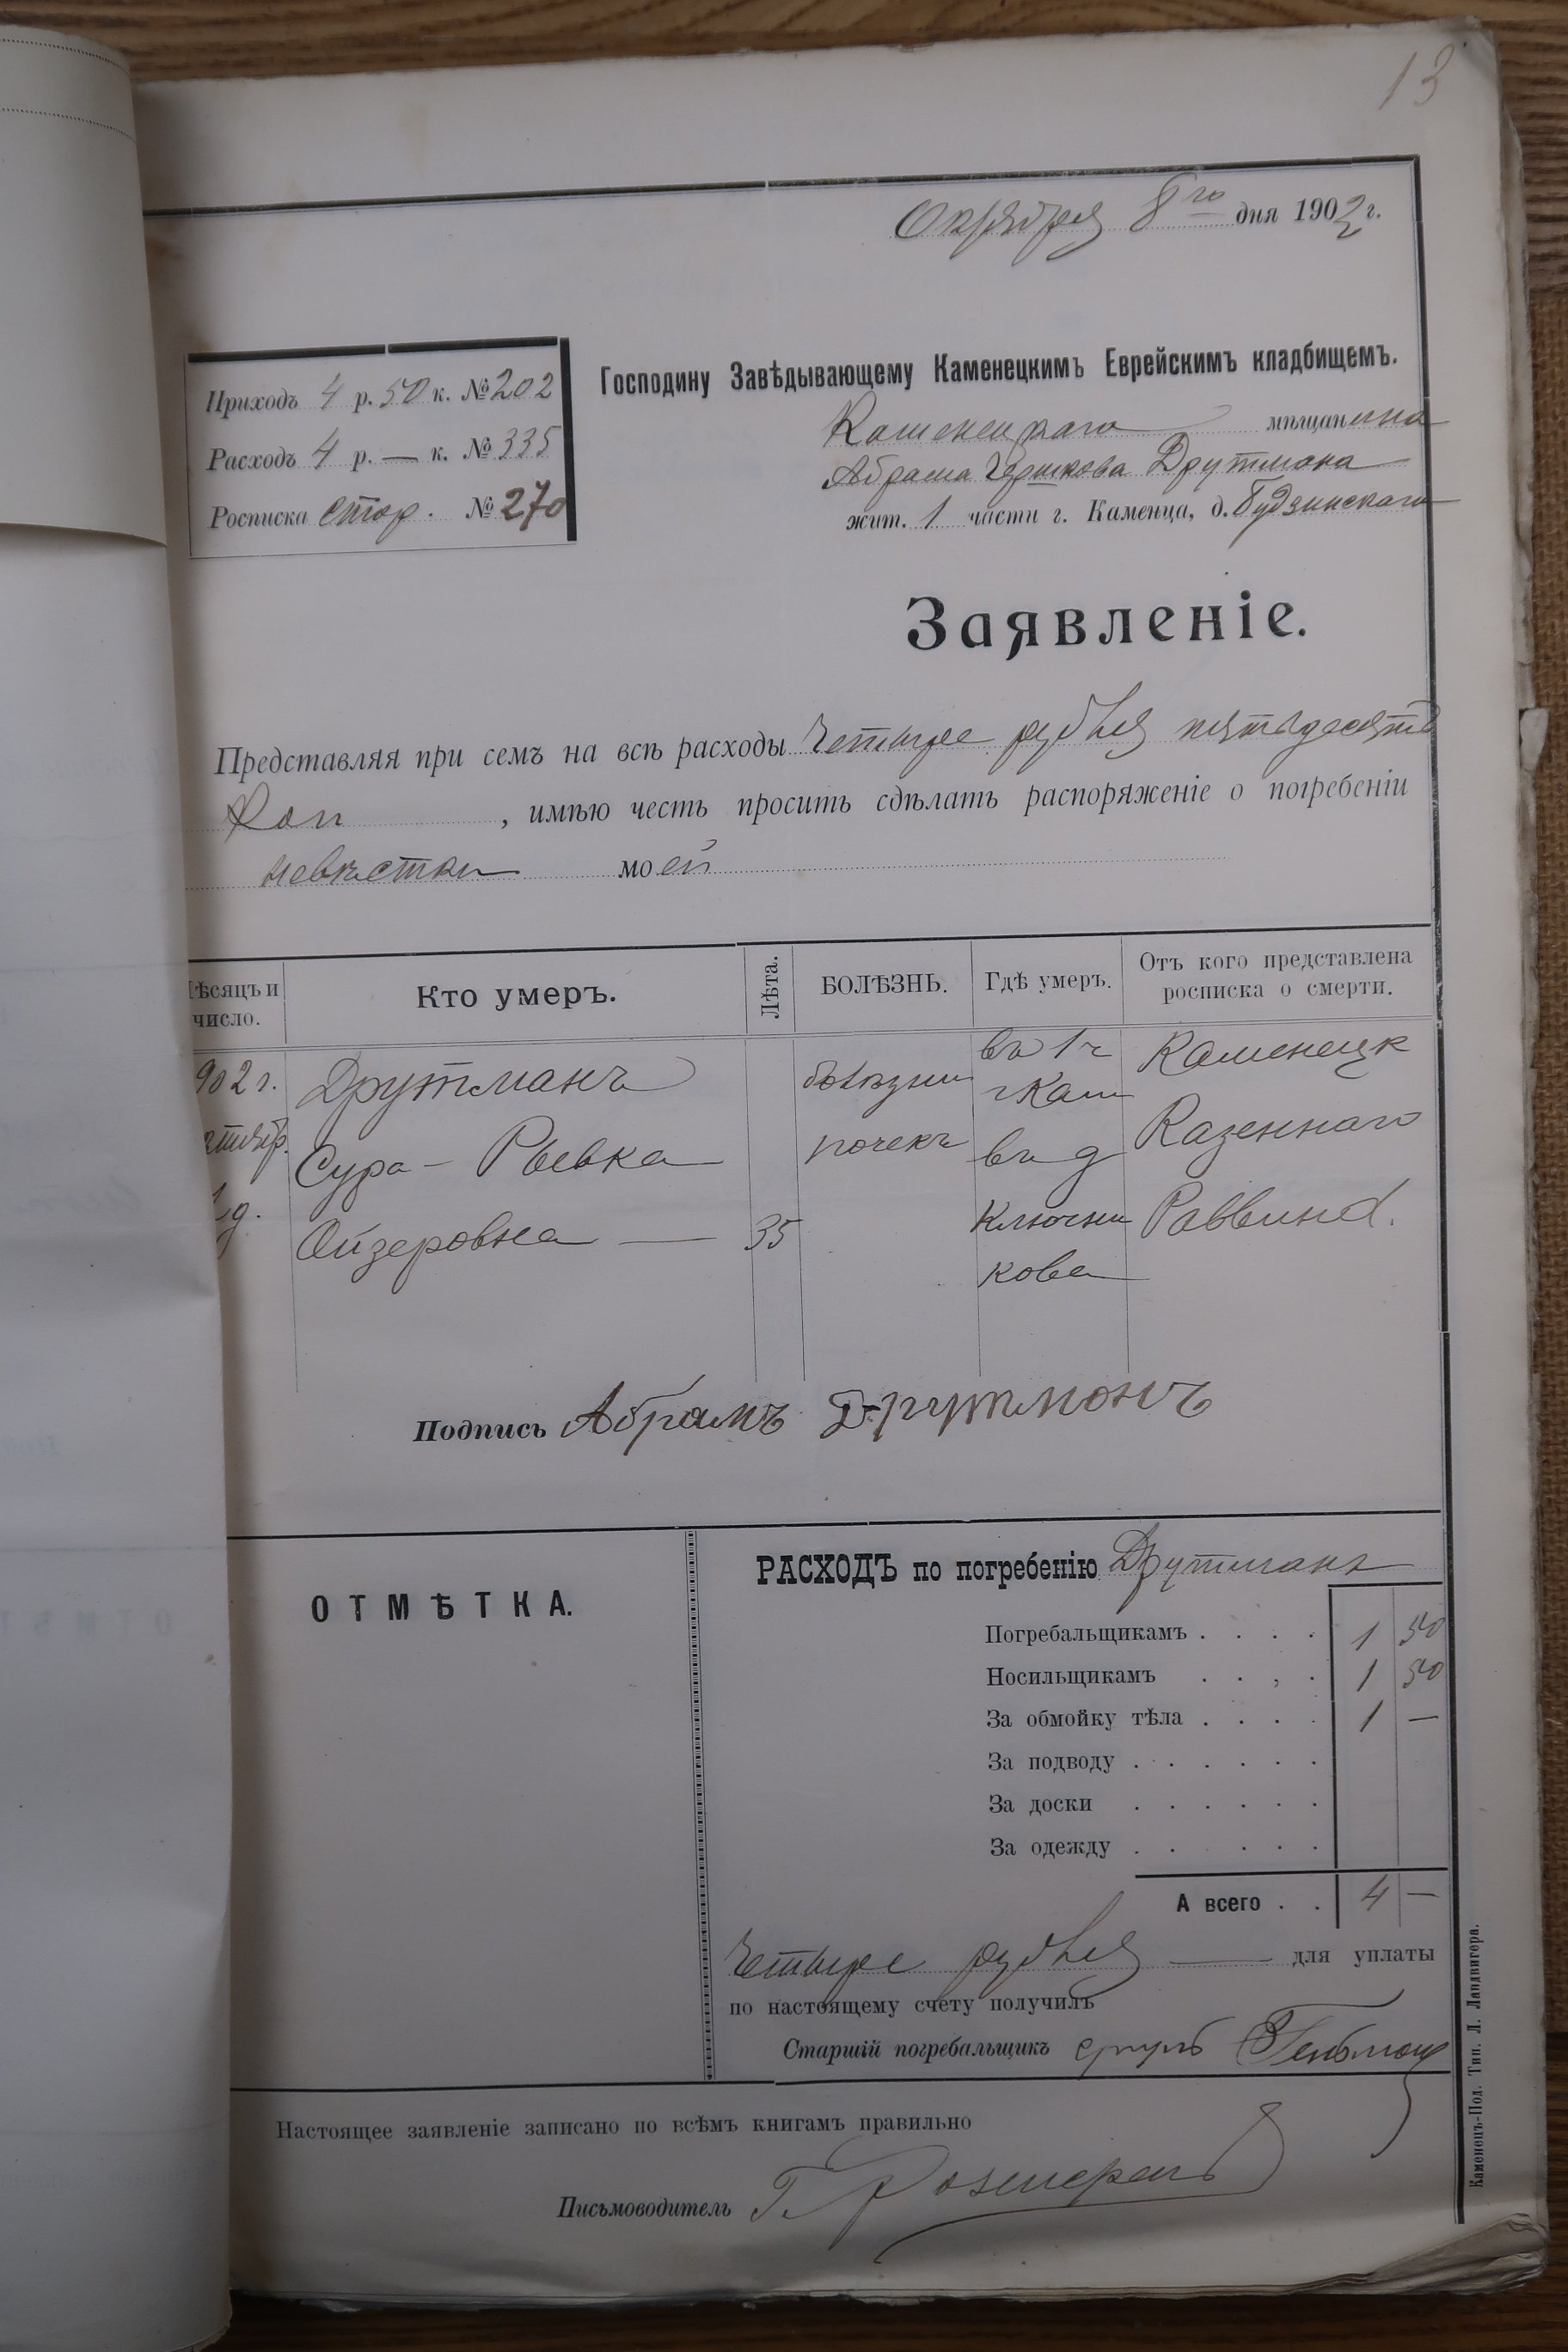 13
Октября 8го дня 1902 г.
Приходъ 4 р. 50 к. № 202
Расходъ 4 р. — к. № 335
Росписка стор. № 270
Господину Завѣдывающему Каменецкимъ Еврейскимъ кладбищемъ.
Каменецкаго мѣщанина
Абрама Гершкова Друтмана
жит. 1 части г. Каменца, д. Будзинскаго
Заявленіе.
Представляя при семъ на всѣ расходы Четыре рубля пятьдесятъ
Коп , имѣю честь просить сдѣлать распоряженіе о погребеніи
невѣстки моей
ѣсяцъ и число. Кто умеръ. Лѣта. БОЛѢЗНЬ. Гдѣ умеръ. Отъ кого представлена росписка о смерти.
902 г. Друтманъ болѣзни въ 1 ч Каменецк
г Кам
Сура - Ривка почекъ въ д Казеннаго
д. Ойзеровна — 35 Ключни Раввина.
кова
Подпись Абрамъ Друтмонъ
ОТМѢТКА.
РАСХОДЪ по погребенію Друтманъ
Погребальщикамъ . . . . 1 50
Носильщикамъ . . . . 1 50
За обмойку тѣла . . . . 1 —
За подводу . . . . . .
За доски . . . . . .
За одежду . . . . . .
А всего . . 4 —
Четыре рубля — для уплаты
по настоящему счету получилъ
Старшій погребальщикъ
Настоящее заявленіе записано по всѣмъ книгамъ правильно
Письмоводитель Г.
Каменецъ-Под. Тип. Л. Ландвигера.